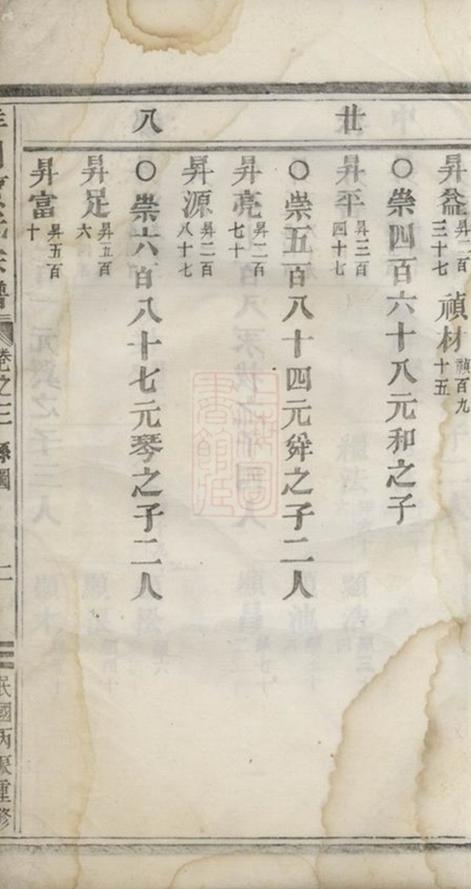 廿
八
昇益昇二百三十七 禎材禎百九十五
○崇四百六十八元和之子
昇平昇三百四十七
○崇五百八十四元舜之子二人
昇亮昇二百七十
昇源昇二百八十七
○崇六百八十七元琴之子二人
昇足昇五百六
昇富昇五百十
宗譜 卷之三 系圖 二 民國丙辰重修
上海圖書館藏